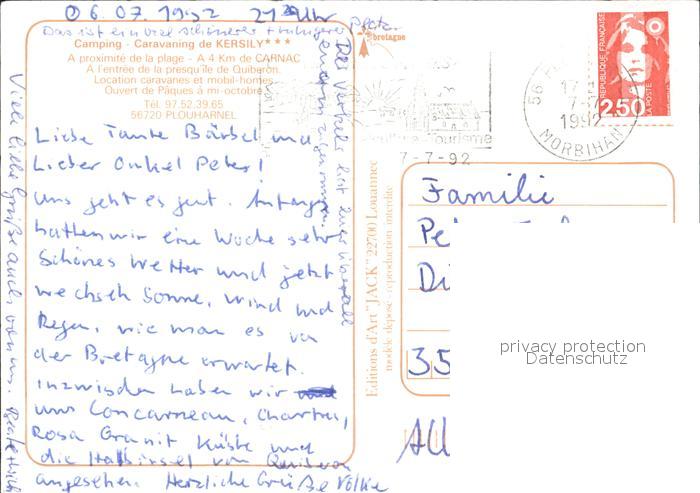 06.07.1992 21 Uhr
Das ist ein viel schönerer + ruhigerer Platz
Camping - Caravaning de KERSILY ★★★
A proximité de la plage - A 4 Km de CARNAC
A l'entrée de la presqu'île de Quiberon
Location caravanes et mobil-homes
Ouvert de Pâques à mi-octobre
Tél. 97.52.39.65
56720 PLOUHARNEL
bretagne
Liebe Tante Bärbel und
Lieber Onkel Peter!
uns geht es gut. Anfangs
hatten wir eine Woche sehr
schönes Wetter und jetzt
wechseln Sonne, Wind und
Regen, wie man es von
der Bretagne erwartet.
Inzwischen haben wir
uns Concarneau, Chartres,
Rosa Granit Küste und
die Halbinsel von Quiberon
angesehen. Herzliche Grüße Volker
Viele liebe Grüße auch von uns.
Der Verkehr hat überall
enorm zugenommen.
Editions d'Art "JACK" 22700 Louannec
modèle déposé - reproduction interdite
Tourisme
7-7-92
56
17
7-7
1992
MORBIHAN
REPUBLIQUE FRANÇAISE
2,50
LA POSTE
Familie
Pe
Di
35
privacy protection
Datenschutz